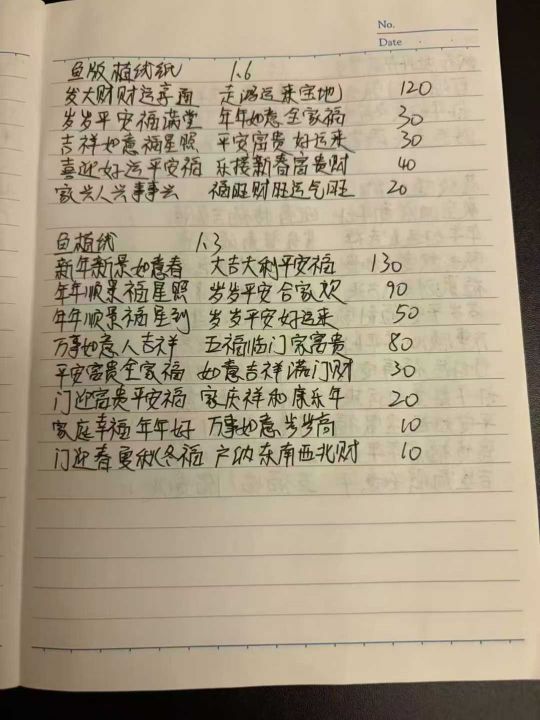 No.
Date
鱼版植绒纸 1.6
发大财财运亨通 走鸿运来宝地 120
岁岁平安福满堂 年年如意全家福 30
吉祥如意福星照 平安富贵好运来 30
喜迎好运平安福 乐接新春富贵财 40
家兴人兴事事兴 福旺财旺运气旺 20
鱼植绒 1.3
新年新景如意春 大吉大利平安福 130
年年顺景福星照 岁岁平安合家欢 90
年年顺景福星到 岁岁平安好运来 50
万事如意人吉祥 五福临门家富贵 80
平安富贵全家福 如意吉祥满门财 30
门迎富贵平安福 家庆祥和康乐年 20
家庭幸福年年好 万事如意步步高 10
门迎春夏秋冬福 户纳东南西北财 10